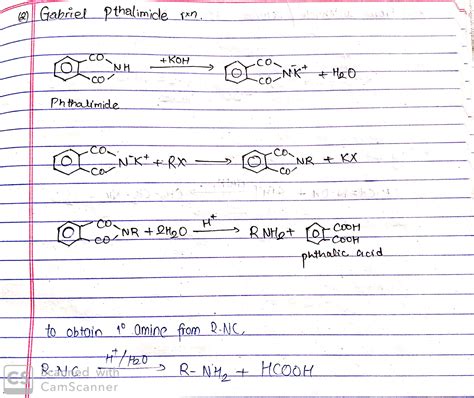 (2) Gabriel Pthalimide rxn.
CO NH CO +KOH → CO N⁻K⁺ CO + H₂O
Phthalimide
CO N⁻K⁺ CO + RX → CO NR CO + KX
CO NR CO + 2H₂O H⁺ → RNH₂ + COOH COOH
phthalic acid
to obtain 1° amine from R-NC,
R-NC H⁺/H₂O → R-NH₂ + HCOOH
CS Scanned with
CamScanner